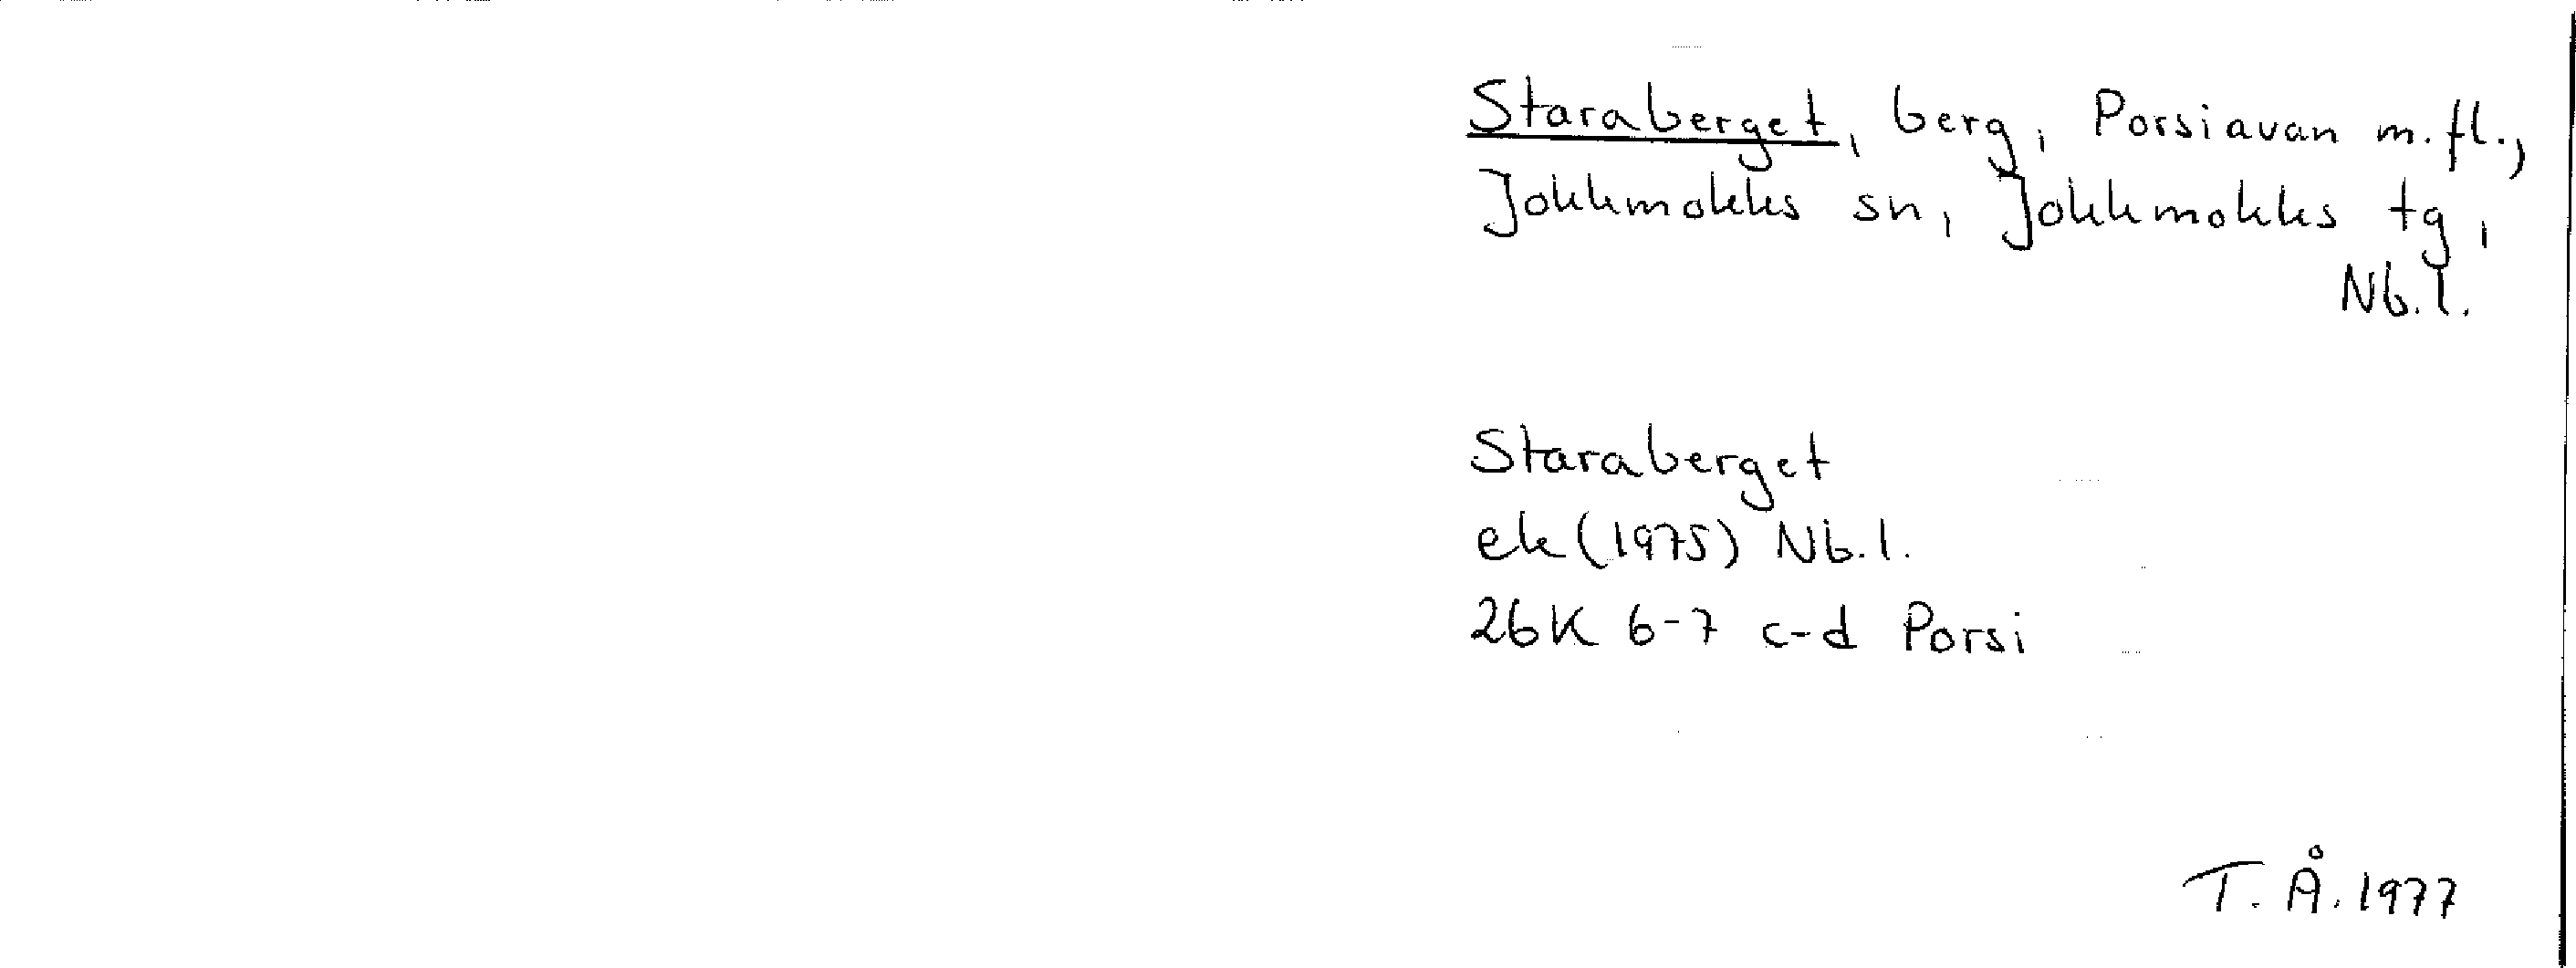 Staraberget, berg, Porsiavan m.fl.,
Jokkmokks sn, Jokkmokks tg,
Nb.l.
Staraberget
ek (1975) Nb.l.
26K 6-7 c-d Porsi
T. Å. 1977